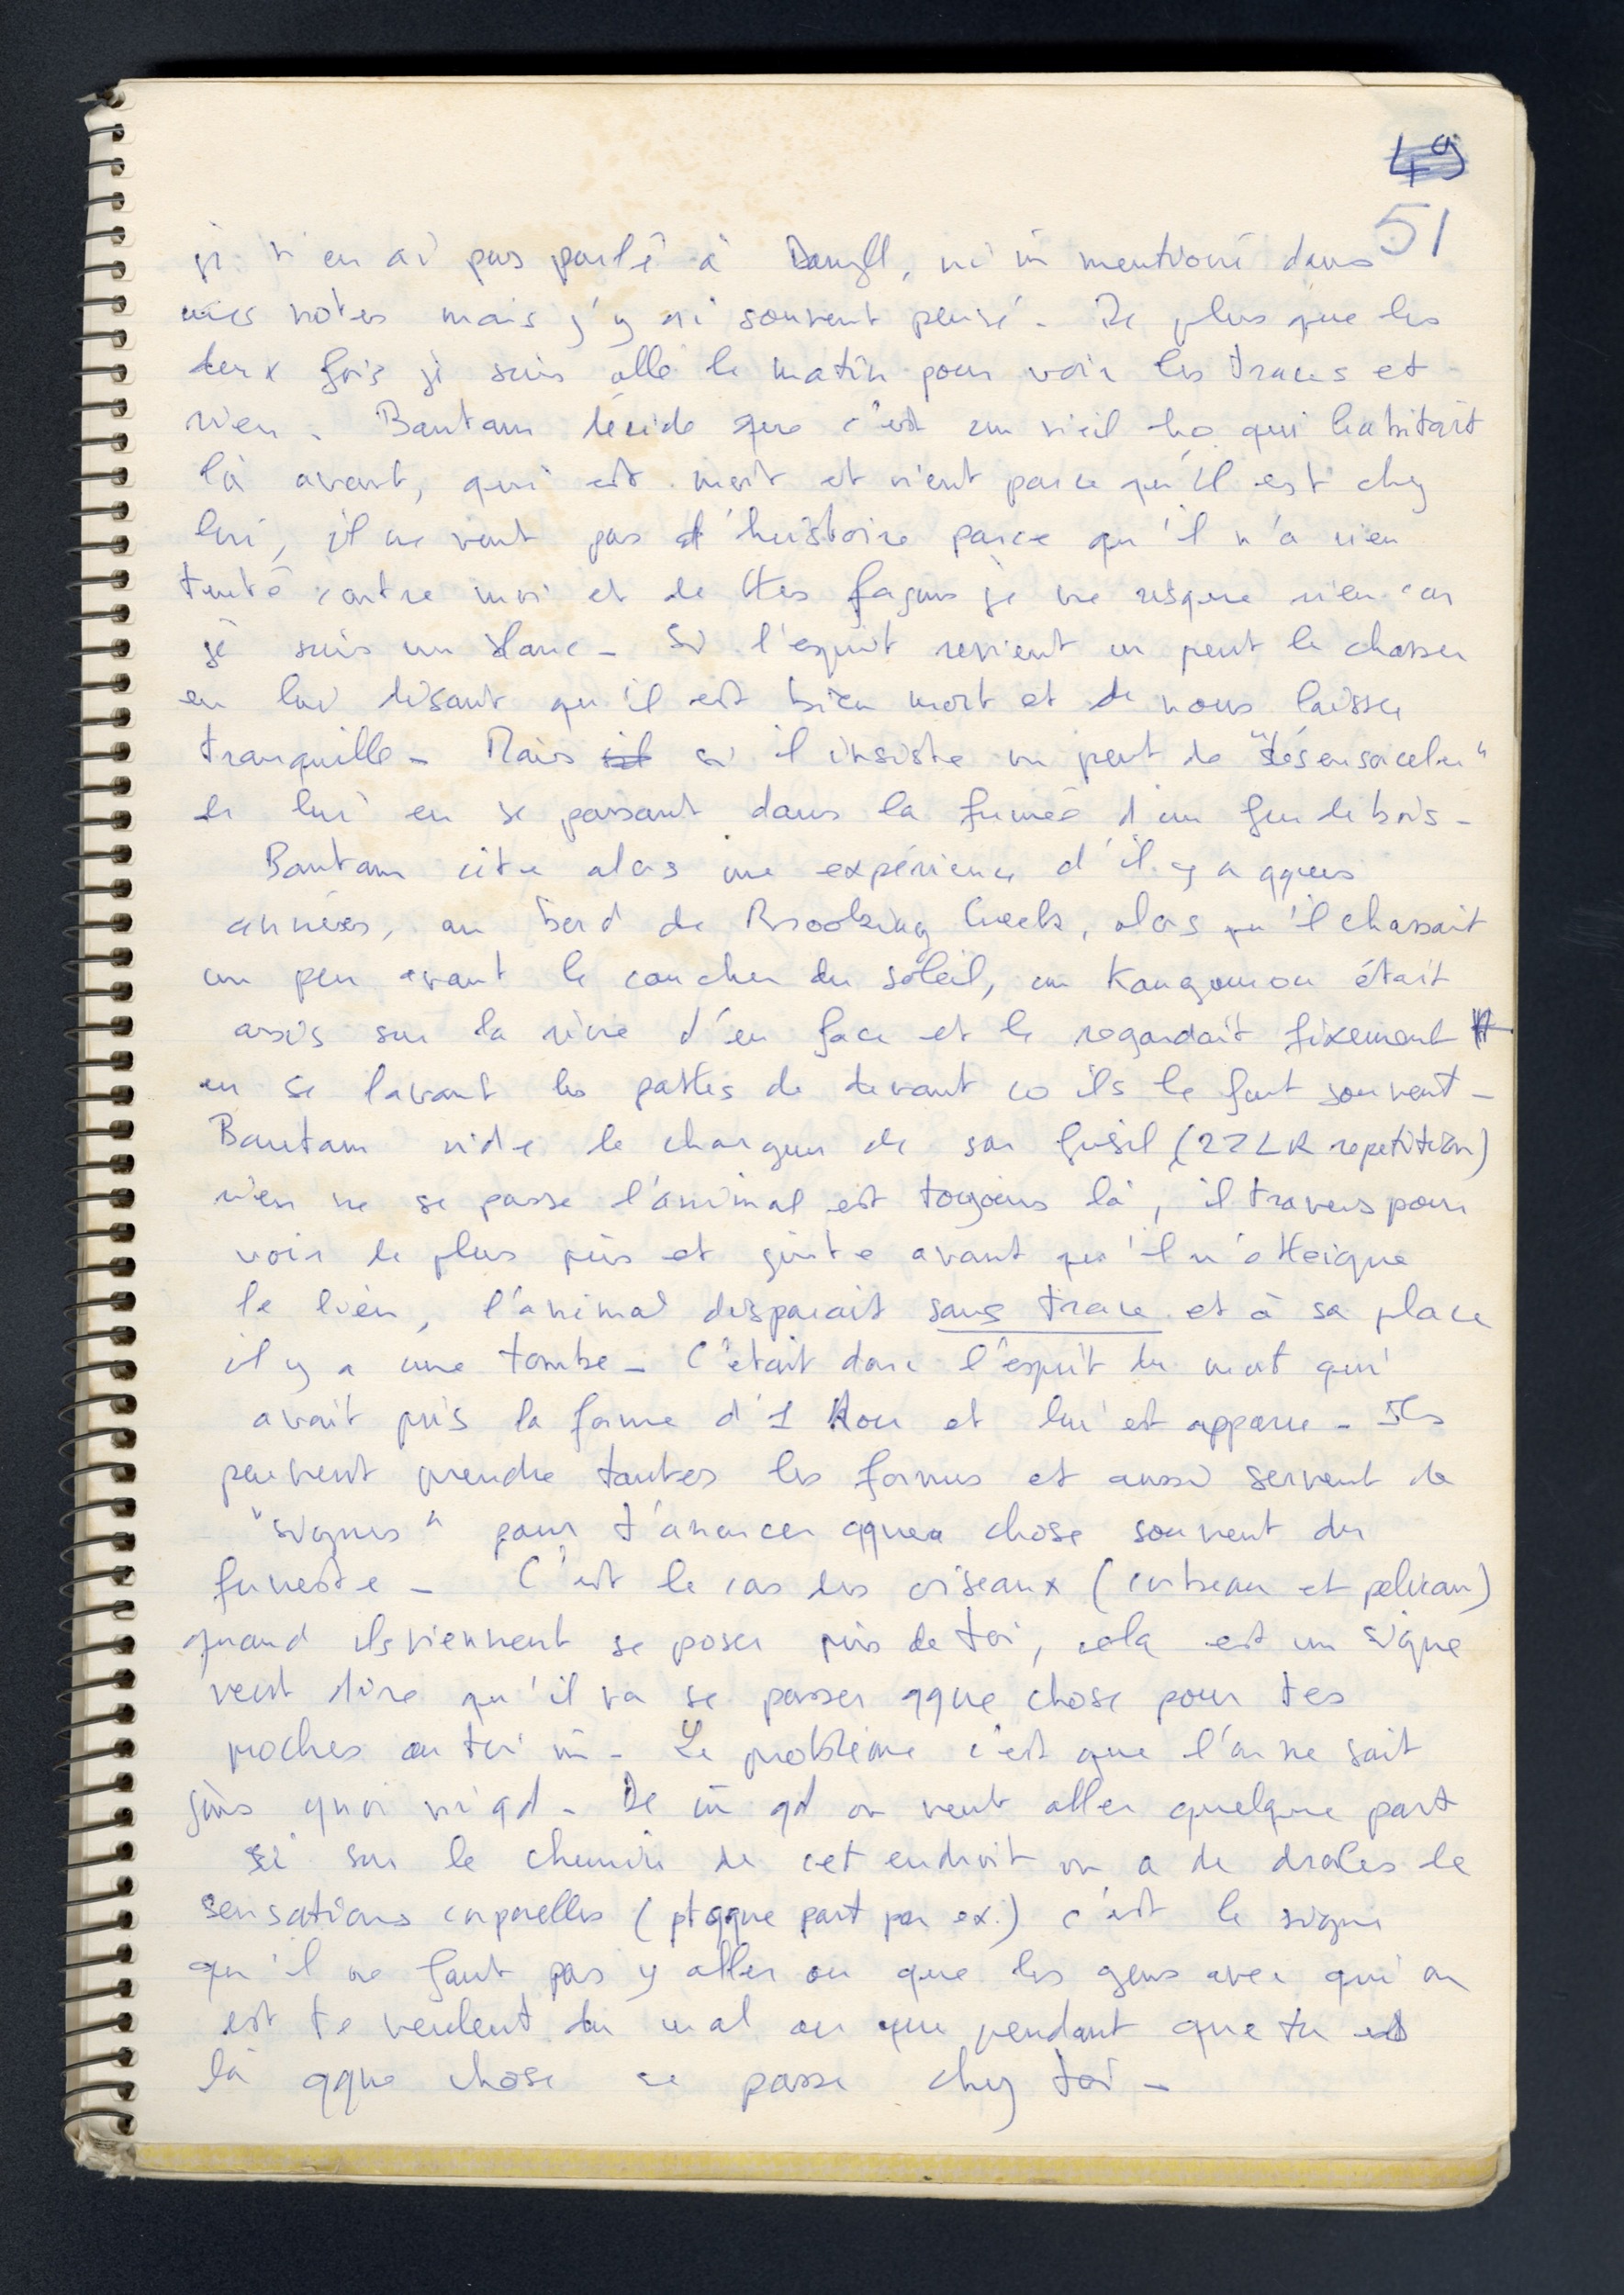 49
51
je n'en ai pas parlé à Daryll, ni m̄ mentioné dans
mes notes mais j'y ai souvent pensé - De plus que les
deux fois je suis allé le matin pour voir les traces et
rien. Bantam décide que c'est un vieil ho. qui habitait
là avant, qui est mort et vient parce qu'il est chez
lui, il ne veut pas d'histoire parce qu'il n'a rien
tenté contre moi et de ttes façons je ne risque rien car
je suis un blanc - Si l'esprit revient on peut le chasser
en lui disant qu'il est bien mort et de nous laisser
tranquille - Mais il si il insiste on peut de "désensorceler"
de lui en se passant dans la fumée d'un feu de bois -
Bantam cite alors une expérience d'il y a qques
années, au bord de Brooking Creek, alors qu'il chassait
un peu avant le coucher du soleil, un Kangourou était
assis sur la rive d'en face et le regardait fixement
en se lavant les pattes de devant co ils le font souvent -
Bantam vide le chargeur de son fusil (22LR repetition)
rien ne se passe l'animal est toujours là, il travers pour
voir de plus près et juste avant qu'il n'atteigne
le lieu, l'animal disparait sans trace et à sa place
il y a une tombe - C'était donc l'esprit du mort qui
avait pris la forme d'1 Kou et lui est apparu - Ils
peuvent prendre toutes les formes et aussi servent de
"signes" pour t'anoncer qque chose souvent du
funeste - C'est le cas des oiseaux (corbeau et pelican)
quand ils viennent se poser près de toi, cela est un signe
veut dire qu'il va se passer qque chose pour tes
proches ou toi m̄ - Le problème c'est que l'on ne sait
jms quoi ni qd - De m̄ qd on veut aller quelque part
si sur le chemin de cet endroit on a de droles de
sensations corporelles (pt qque part par ex.) c'est le signe
qu'il ne faut pas y aller ou que les gens avec qui on
est te veulent du mal ou que pendant que tu es
là qque chose se passe chez toi -